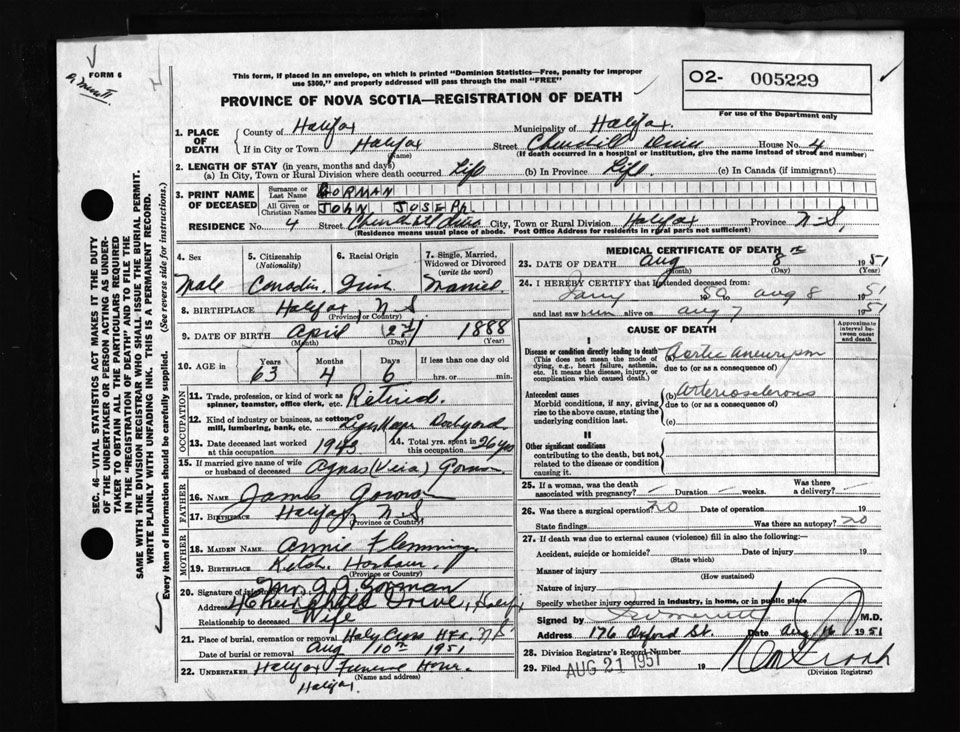 FORM 6
This form, if placed in an envelope, on which is printed "Dominion Statistics—Free, penalty for improper
use $300," and properly addressed will pass through the mail "FREE"
O2- 005229
For use of the Department only
PROVINCE OF NOVA SCOTIA—REGISTRATION OF DEATH
SEC. 46—VITAL STATISTICS ACT MAKES IT THE DUTY
OF THE UNDERTAKER OR PERSON ACTING AS UNDER-
TAKER TO OBTAIN ALL THE PARTICULARS REQUIRED
IN THE "REGISTRATION OF DEATH" AND TO FILE THE
SAME WITH THE DIVISION REGISTRAR WHO SHALL ISSUE THE BURIAL PERMIT.
WRITE PLAINLY WITH UNFADING INK. THIS IS A PERMANENT RECORD.
Every item of information should be carefully supplied. (See reverse side for instructions.)
1. PLACE OF DEATH
County of Halifax Municipality of Halifax
If in City or Town Halifax Street Churchill Drive House No. 4
(Name) (If death occurred in a hospital or institution, give the name instead of street and number)
2. LENGTH OF STAY (in years, months and days)
(a) In City, Town or Rural Division where death occurred Life (b) In Province Life (c) In Canada (if immigrant)
3. PRINT NAME OF DECEASED
Surname or Last Name GORMAN
All Given or Christian Names JOHN JOSEPH
RESIDENCE No. 4 Street Churchill Drive City, Town or Rural Division Halifax Province N-S,
(Residence means usual place of abode. Post Office Address for residents in rural parts not sufficient)
4. Sex 5. Citizenship (Nationality) 6. Racial Origin 7. Single, Married, Widowed or Divorced (write the word)
Male Canadian Irish Married
8. BIRTHPLACE Halifax N S
(Province or Country)
9. DATE OF BIRTH April 2nd 1888
(Month) (Day) (Year)
10. AGE in Years Months Days If less than one day old
63 4 6 hrs. or min.
OCCUPATION
11. Trade, profession, or kind of work as spinner, teamster, office clerk, etc. Retired.
12. Kind of industry or business, as cotton mill, lumbering, bank, etc. Dockyard
13. Date deceased last worked at this occupation 1943 14. Total yrs. spent in this occupation 26 yrs
15. If married give name of wife or husband of deceased Agnas Gorman
FATHER
16. NAME James Gorman
17. BIRTHPLACE Halifax N-S
(Province or Country)
MOTHER
18. MAIDEN NAME Annie Flemming
19. BIRTHPLACE Ketch Harbour
(Province or Country)
20. Signature of informant Mrs J. J. Gorman
Address 4 Churchill Drive, Halifax
Relationship to deceased Wife
21. Place of burial, cremation or removal Holy Cross Hfx. N S
Date of burial or removal Aug 10th 1951
22. UNDERTAKER Halifax Funeral Home
(Name and address)
Halifax
MEDICAL CERTIFICATE OF DEATH
23. DATE OF DEATH Aug 8th 1951
(Month) (Day) (Year)
24. I HEREBY CERTIFY that I attended deceased from:
Jany to Aug 8 1951
and last saw him alive on Aug 7 1951
CAUSE OF DEATH
Approximate interval between onset and death
I
Disease or condition directly leading to death (a) Aortic aneurysm
(This does not mean the mode of dying, e.g., heart failure, asthenia, etc. It means the disease, injury, or complication which caused death.)
due to (or as a consequence of)
Antecedent causes (b) Arteriosclerosis
Morbid conditions, if any, giving rise to the above cause, stating the underlying condition last.
due to (or as a consequence of)
(c)
II
Other significant conditions
contributing to the death, but not related to the disease or condition causing it.
25. If a woman, was the death associated with pregnancy? — Duration — weeks. Was there a delivery? —
26. Was there a surgical operation? no Date of operation 19
State findings Was there an autopsy? no
27. If death was due to external causes (violence) fill in also the following:—
Accident, suicide or homicide? Date of injury 19
(State which)
Manner of injury
(How sustained)
Nature of injury
Specify whether injury occurred in industry, in home, or in public place
Signed by M.D.
Address 176 Oxford St. Date Aug 16 1951
28. Division Registrar's Record Number
29. Filed AUG 21 1951 19
(Division Registrar)